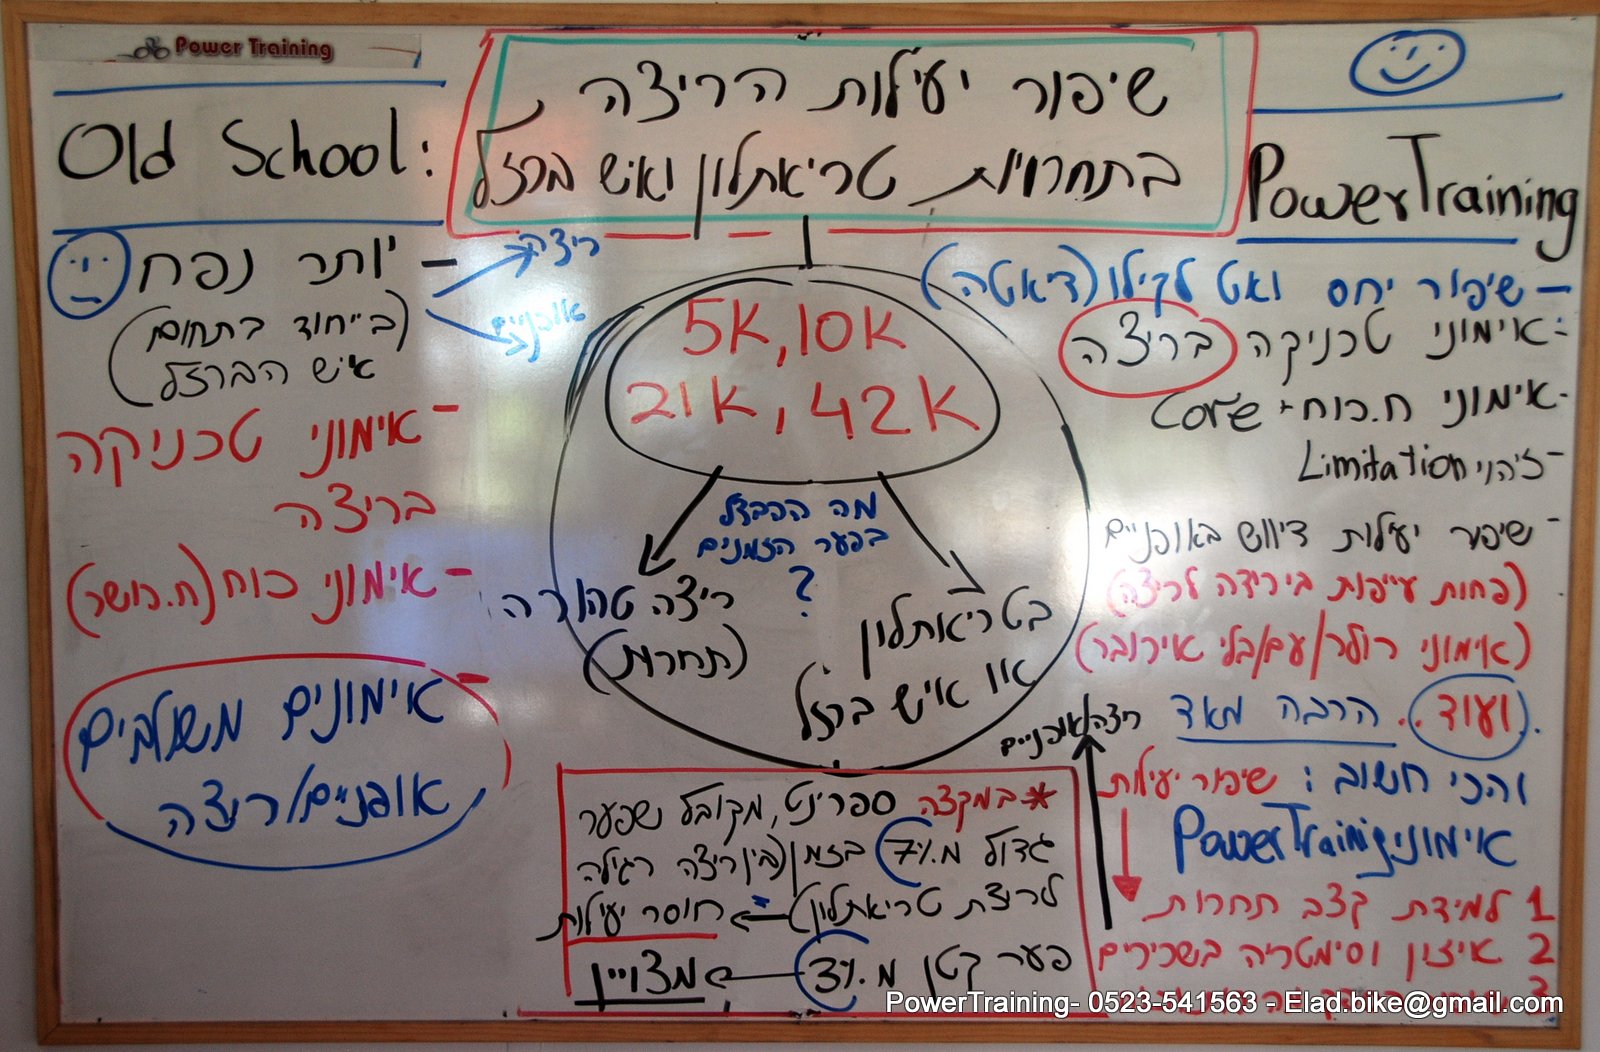 Power Training
שיפור יעילות הריצה
בתחרויות טריאתלון ואיש ברזל
Old School:
- יותר נפח
ריצה
אופניים
(בייחוד בתחום
איש הברזל)
- אימוני טכניקה
בריצה
- אימוני כוח (ח.כושר)
- אימונים משולבים
אופניים/ריצה
5K, 10K
21K, 42K
מה ההבדל
בפער הזמנים
?
ריצה טהורה
(תחרות)
בטריאתלון
או איש ברזל
* במקצה ספרינט, מקובל שפער
גדול מ.7% בזמן (בין ריצה רגילה
לריצת טריאתלון) חוסר יעילות
פער קטן מ.3% מצויין
PowerTraining
- שיפור יחס ואט לקילו (דיאטה)
- אימוני טכניקה בריצה
- אימוני ח.כוח + core
- זיהוי Limitation
- שיפור יעילות דיווש באופניים
(פחות עייפות בירידה לריצה)
(אימוני רולר/עם/בלי אירובר)
(ועוד.. הרבה מאד
והכי חשוב: שיפור יעילות ריצה/אופניים
אימוני PowerTraining
1 למידת קצב תחרות
2 איזון וסימטריה בשרירים
3
PowerTraining- 0523-541563 - Elad.bike@gmail.com